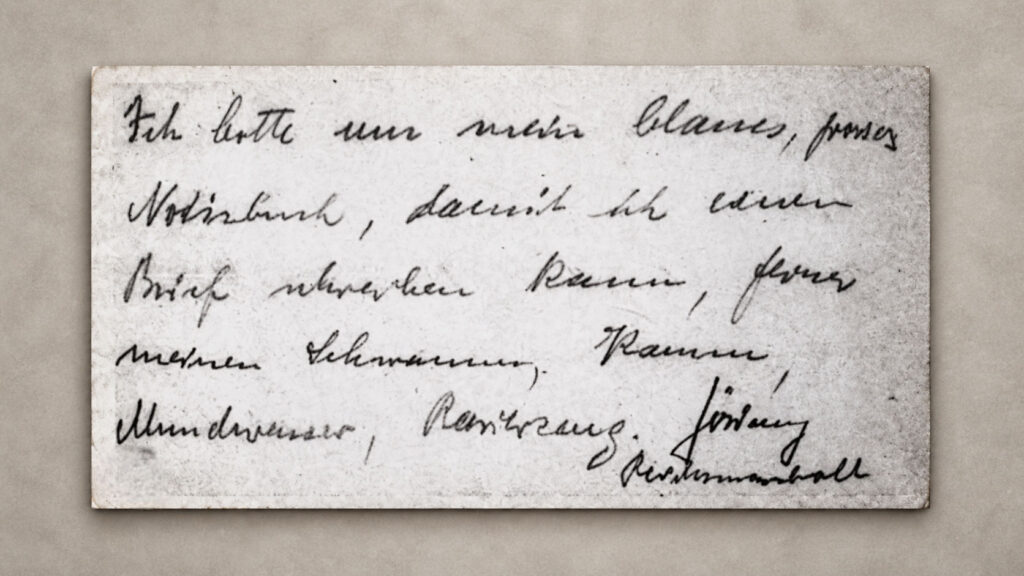 Ich bitte um mein blaues, grosses
Notizbuch, damit ich einen
Brief schreiben kann, ferner
meinen Schwamm, Kamm,
Mundwasser, Rasierzeug. Göring
Reichsmarschall